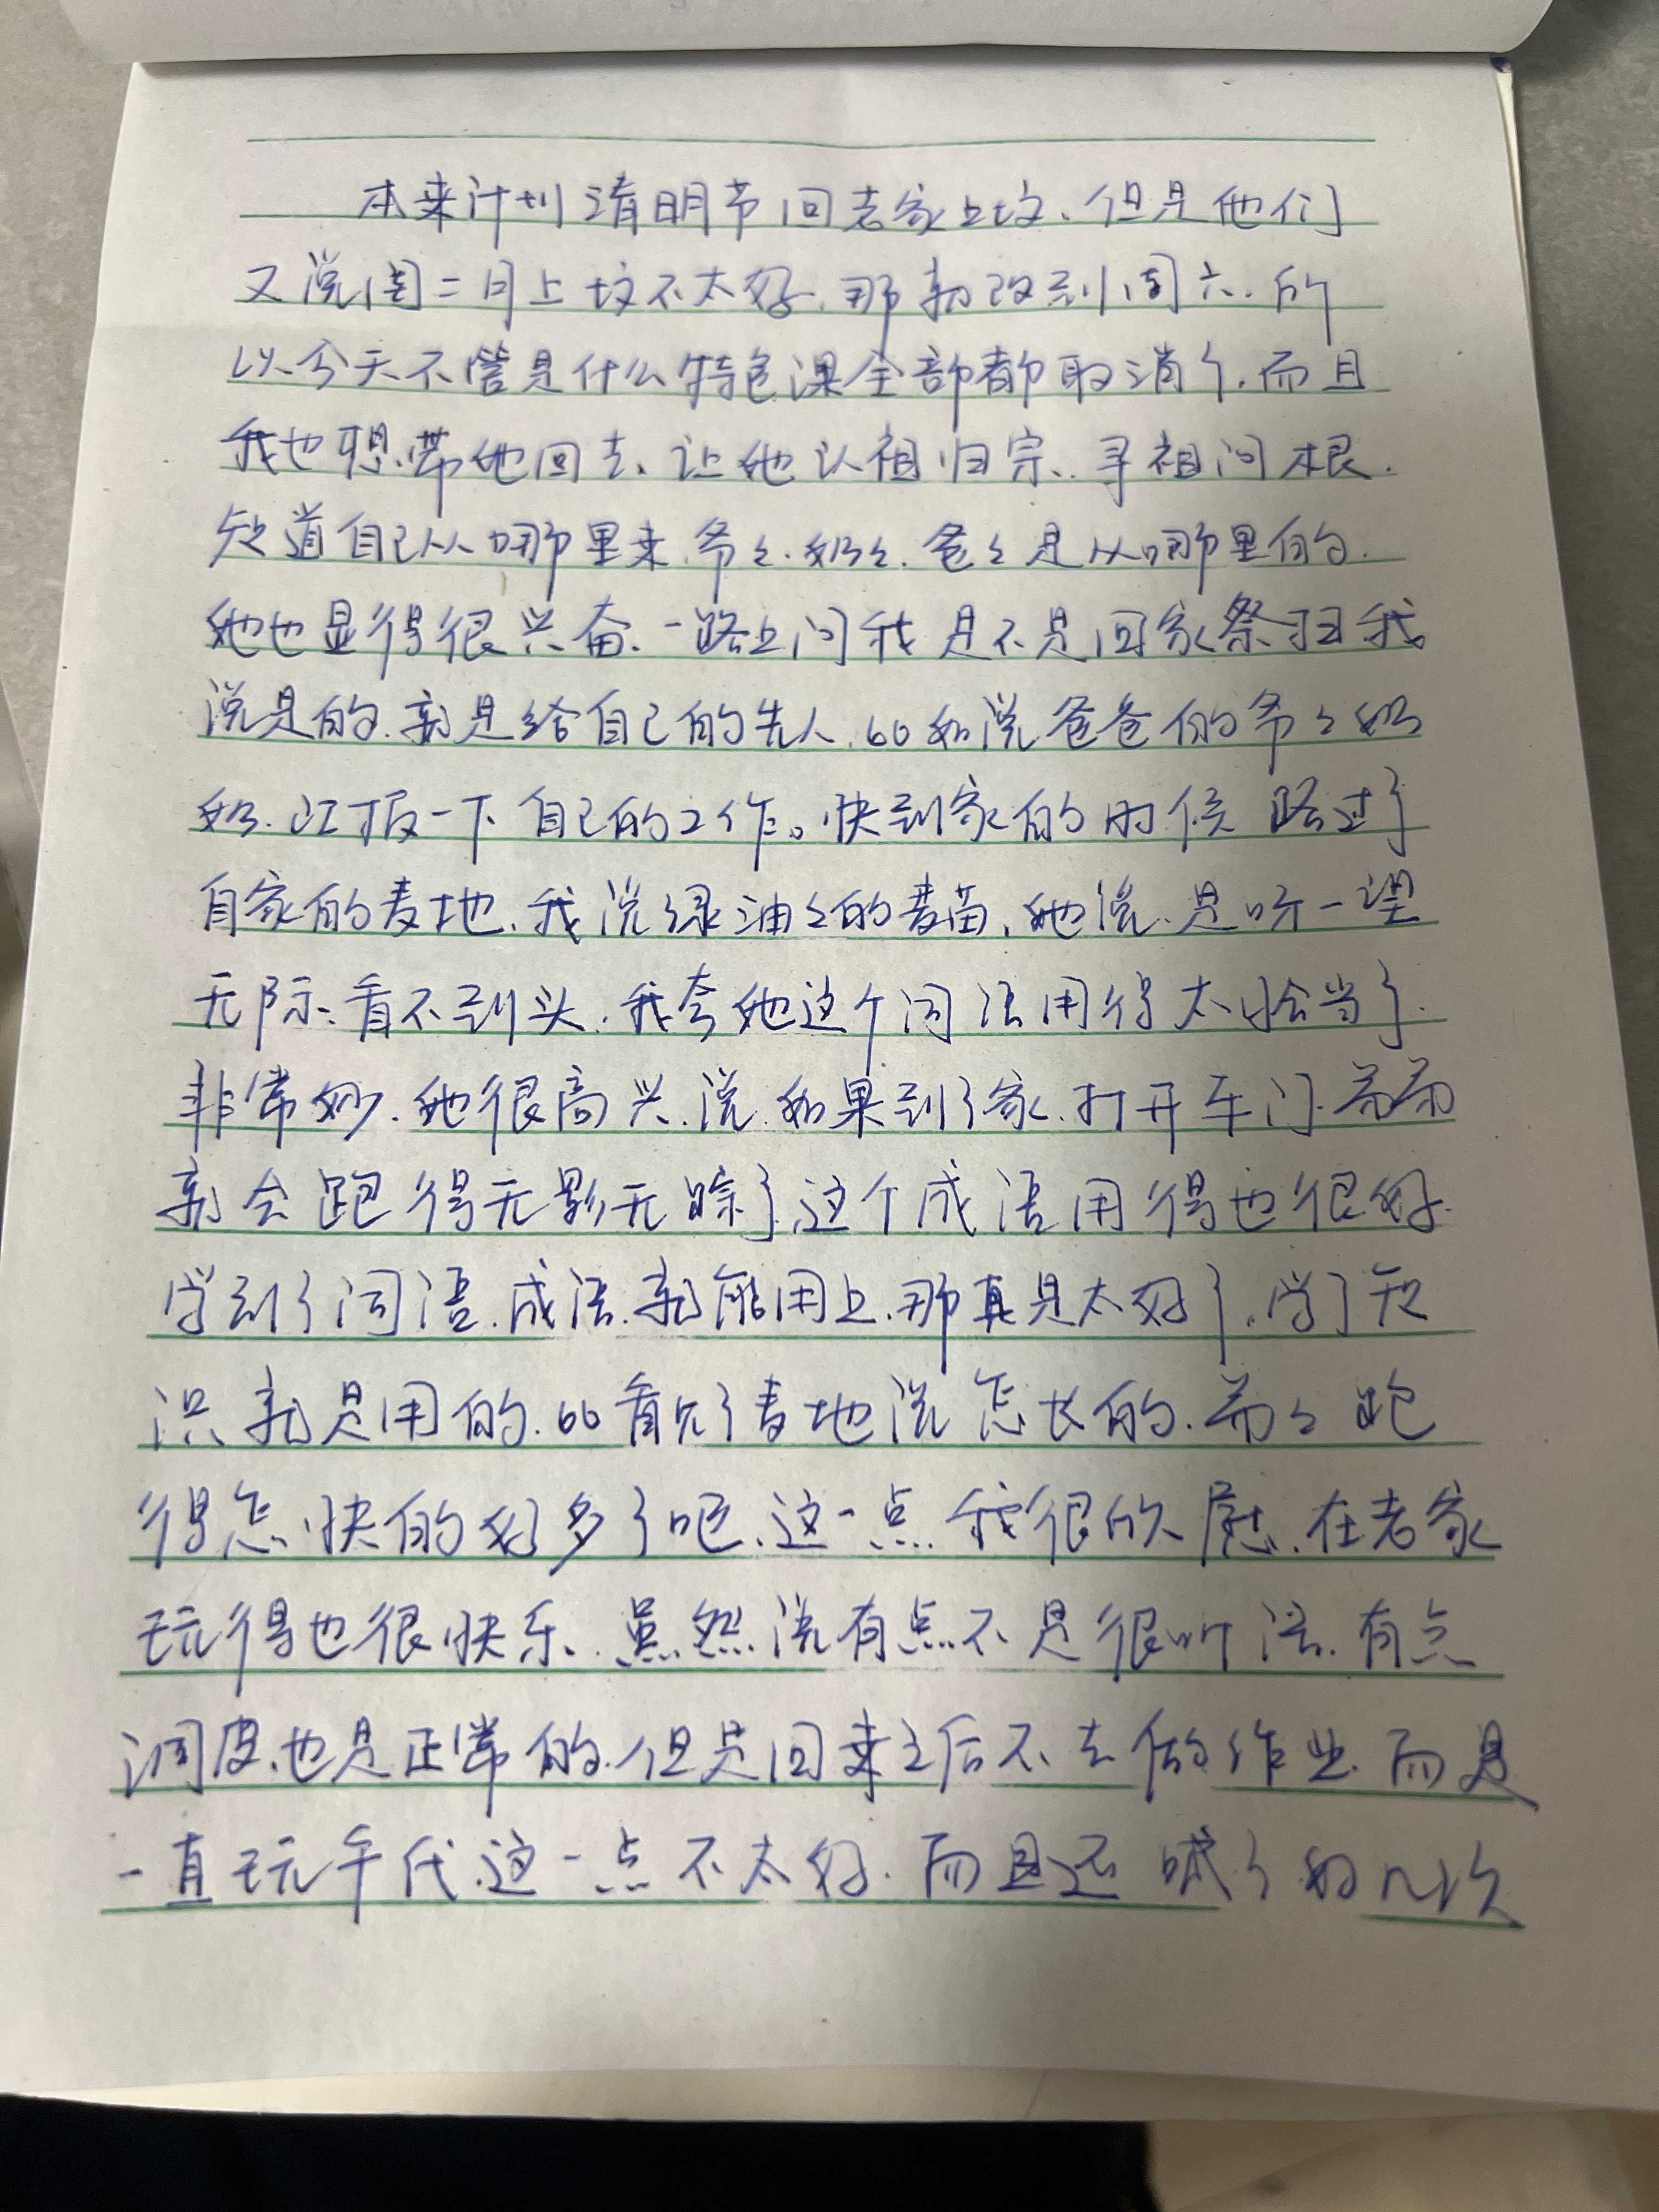 本来计划清明节回老家上坟、但是他们
又说闰二月上坟不太好.那就改到周六.所
以今天不管是什么特色课全部都取消了.而且
我也想带她回去、让她认祖归宗、寻祖问根.
知道自己从哪里来.爷々.奶々.爸々是从哪里的.
她也显得很兴奋.一路上问我是不是回家祭扫我
说是的.就是给自己的先人.比如说爸爸的爷々奶
奶.汇报一下自己的工作。快到家的时候路过了
自家的麦地.我说绿油々的麦苗.她说.是呀一望
无际.看不到头.我夸她这个词语用得太恰当了.
非常妙.她很高兴.说.如果到了家.打开车门.芮芮
就会跑得无影无踪了.这个成语用得也很好.
学到了词语.成语.就能用上.那真是太好了.学了知
识就是用的.比看见了麦地说怎长的.芮々跑
得怎快的好多了吧.这一点我很欣慰.在老家
玩得也很快乐.虽然说有点不是很听话.有点
调皮.也是正常的.但是回来之后不去做作业.而是
一直玩手代.这一点不太好.而且还喊了好几次